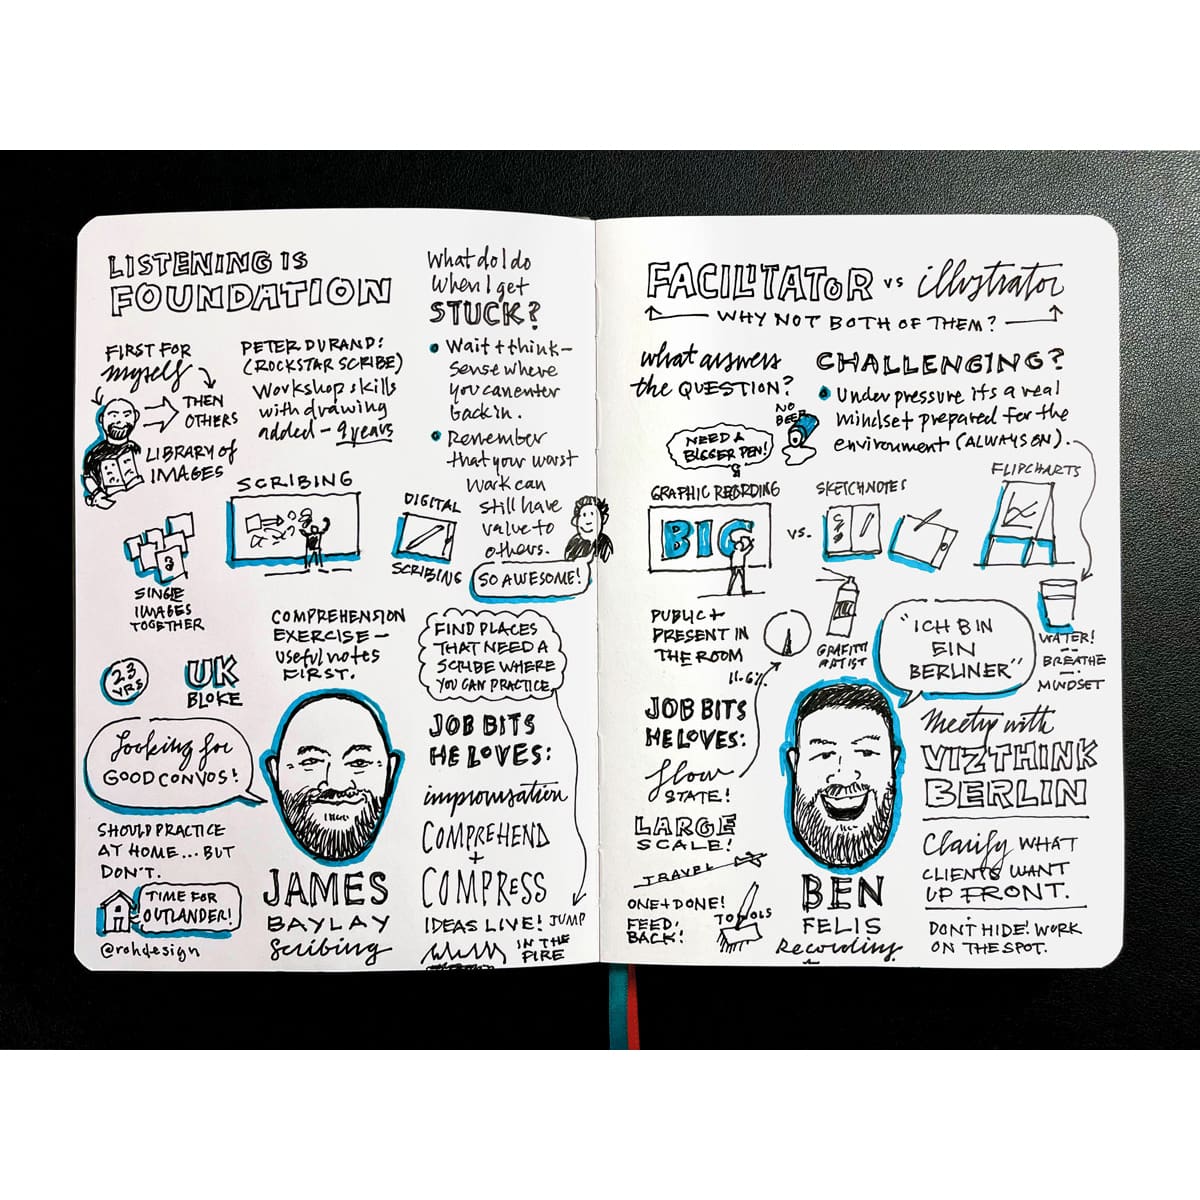 LISTENING IS
FOUNDATION
FIRST FOR
myself
THEN
OTHERS
LIBRARY of
IMAGES
PETER DURAND:
(ROCKSTAR SCRIBE)
Workshop skills
with drawing
added – 9 years
SCRIBING
DIGITAL
SCRIBING
SINGLE
IMAGES
TOGETHER
2.3
YRS
UK
BLOKE
COMPREHENSION
EXERCISE –
useful notes
FIRST.
Looking for
GOOD CONVOS!
SHOULD PRACTICE
AT HOME... BUT
DON'T.
TIME FOR
OUTLANDER!
@rohdesign
JAMES
BAYLAY
Scribing
What do I do
When I get
STUCK?
Wait + think –
sense where
you can enter
back in.
Remember
that your worst
work can
still have
value to
others.
SO AWESOME!
FIND PLACES
THAT NEED A
SCRIBE WHERE
YOU CAN PRACTICE
JOB BITS
HE LOVES:
improvisation
COMPREHEND
+
COMPRESS
IDEAS LIVE! JUMP
IN THE
FIRE
FACILITATOR vs illustrator
WHY NOT BOTH OF THEM?
what answers
the QUESTION?
NO
BEER
NEED A
BIGGER PEN!
GRAPHIC RECORDING
BIG
vs.
SKETCHNOTES
CHALLENGING?
Under pressure its a real
mindset prepared for the
environment (ALWAYS ON).
FLIPCHARTS
PUBLIC +
PRESENT IN
THE ROOM
11.6%
GRAFITTI
ARTIST
"ICH BIN
EIN
BERLINER"
WATER!
BREATHE
MINDSET
JOB BITS
HE LOVES:
flow
STATE!
LARGE
SCALE!
TRAVEL
ONE + DONE!
FEED.
BACK!
TOOLS
BEN
FELIS
Recording
Meetup with
VIZTHINK
BERLIN
Clarify WHAT
CLIENTS WANT
UP FRONT.
DON'T HIDE! WORK
ON THE SPOT.